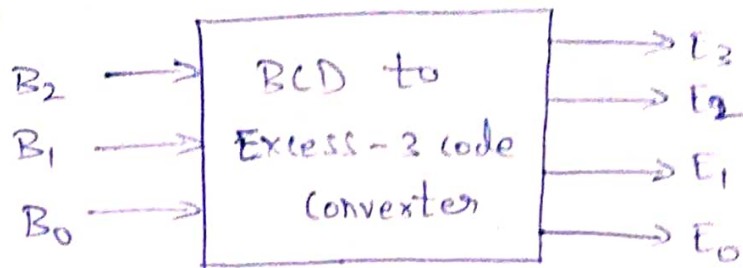 B2
B1
B0
BCD to
Excess-3 code
Converter
E3
E2
E1
E0